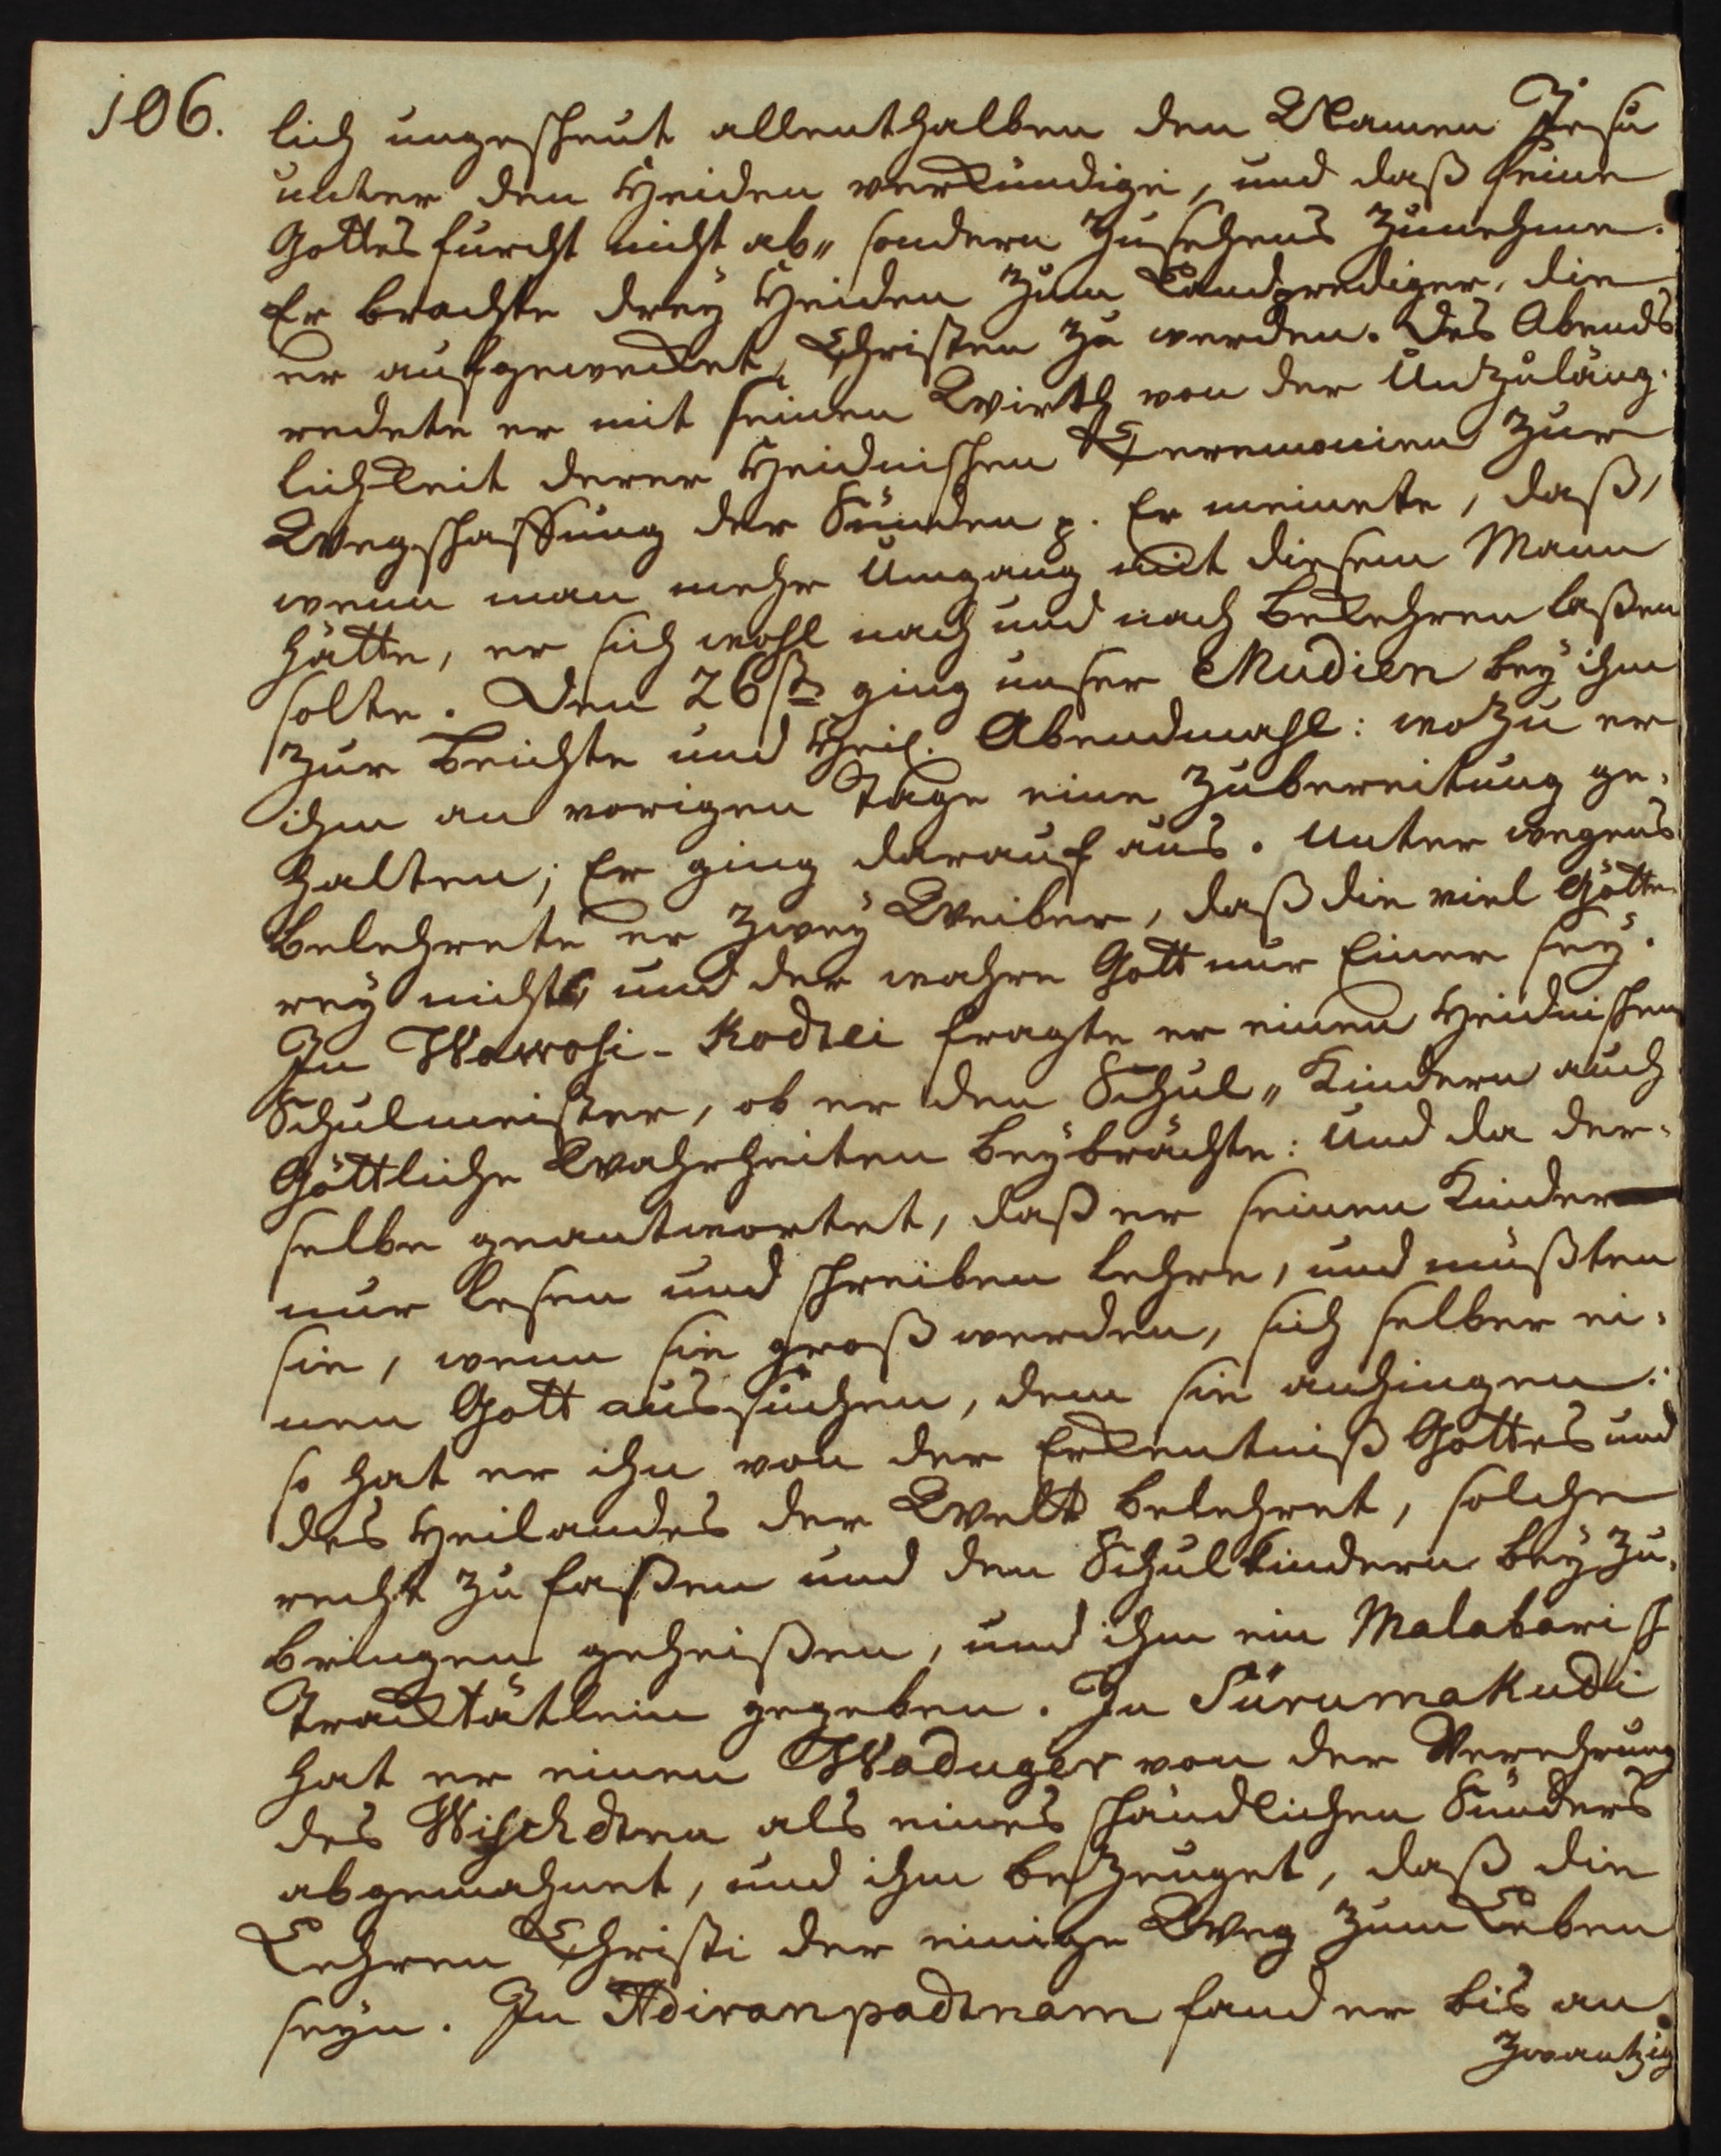 106.
lich ungescheut allenthalben den Namen Jesu
unter den Heiden verkündige, und daß seine
Gottesfurcht nicht ab„ sondern zusehens zunehme.
Er brachte drey Heiden zum Landprediger, die
er aufgewecket, Christen zu werden. Des Abends
redete er mit seinen Wirth von der Unzuläng-
lichkeit derer Heidnischen Ceremonien zur
Wegschaffung der Sünden p. Er meinete, daß,
wenn man mehr Umgang mit diesem Mann
hätte, er sich wohl nach und nach bekehren laßen
solte. Den 26st ging unser Mudien bey ihm
zur Beichte und Heil. Abendmahl: wozu er
ihm am vorigen Tage eine Zubereitung ge-
halten; Er ging darauf aus. Unter wegens
belehrete er zwey Weiber, daß die viel Götte-
rey nichts, und der wahre Gott nur Einer sey.
In Wawosi-Kodtei fragte er einen Heidnischen
Schulmeister, ob er den Schul„ Kindern auch
Göttliche Wahrheiten beybrächte: Und da der-
selbe geantwortet, daß er seinen Kinder
nur lesen und schreiben lehre, und müßten
sie, wenn sie groß werden, sich selber ei-
nen Gott aussuchen, dem sie anhingen:
so hat er ihn von der Erkentniß Gottes und
des Heilandes der Welt belehret, solche
recht zu faßen und den Schulkindern beyzu-
bringen geheißen, und ihm ein Malabarisch
Tractätlein gegeben. In Sürumakudi
hat er einen Waduger von der Verehrung
des Wischdnu als eines schändlichen Sünders
abgemahnet, und ihm bezeuget, daß die
Lehren Christi der einige Weg zum Leben
seyn. In Adiranpadnam fand er bis an
zwantzig